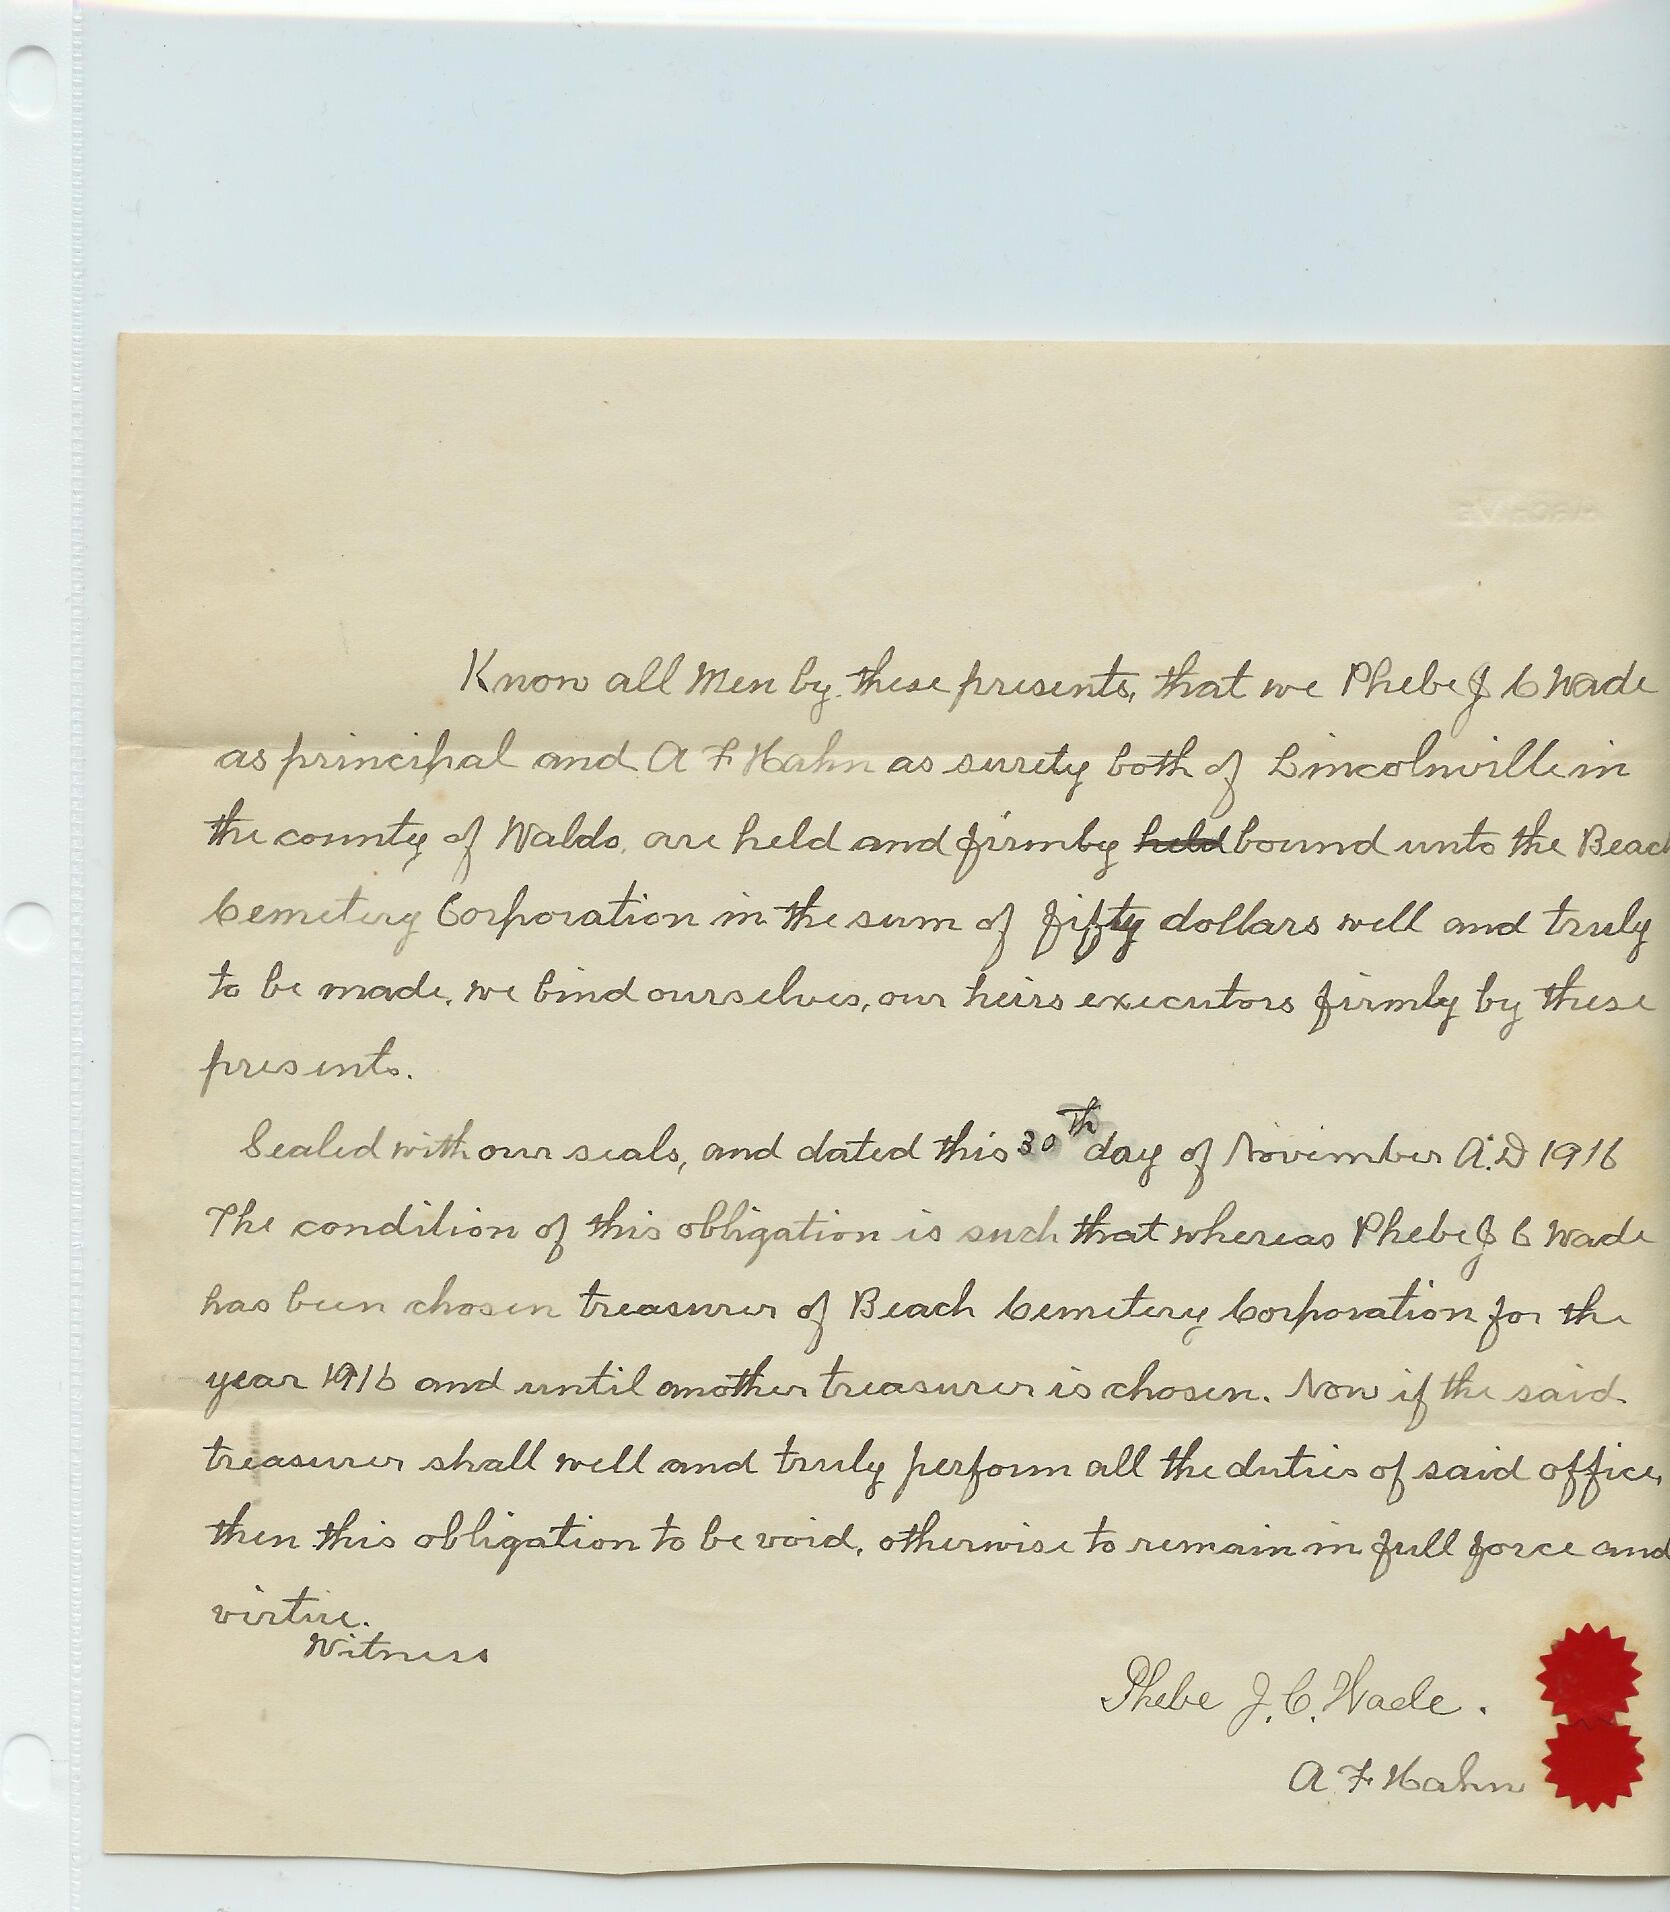 Know all Men by these presents, that we Phebe J C Wade
as principal and A F Hahn as surety both of Lincolnville in
the county of Waldo, are held and firmly held bound unto the Beach
Cemetery Corporation in the sum of fifty dollars well and truly
to be made, we bind ourselves, our heirs executors firmly by these
presents.
Sealed with our seals, and dated this 30th day of November A.D 1916
The condition of this obligation is such that whereas Phebe J C Wade
has been chosen treasurer of Beach Cemetery Corporation for the
year 1916 and until another treasurer is chosen. Now if the said
treasurer shall well and truly perform all the duties of said office,
then this obligation to be void, otherwise to remain in full force and
virtue.
Witness
Phebe J. C. Wade.
A F Hahn